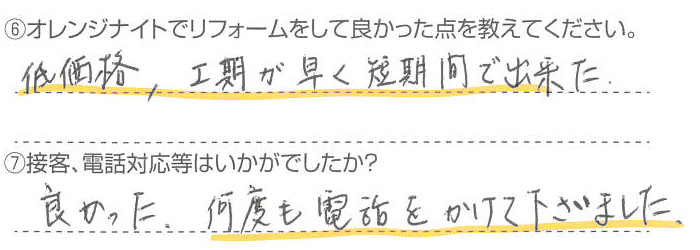 ⑥オレンジナイトでリフォームをして良かった点を教えてください。
低価格, 工期が早く短期間で出来た.
⑦接客、電話対応等はいかがでしたか?
良かった. 何度も電話をかけて下さいました.